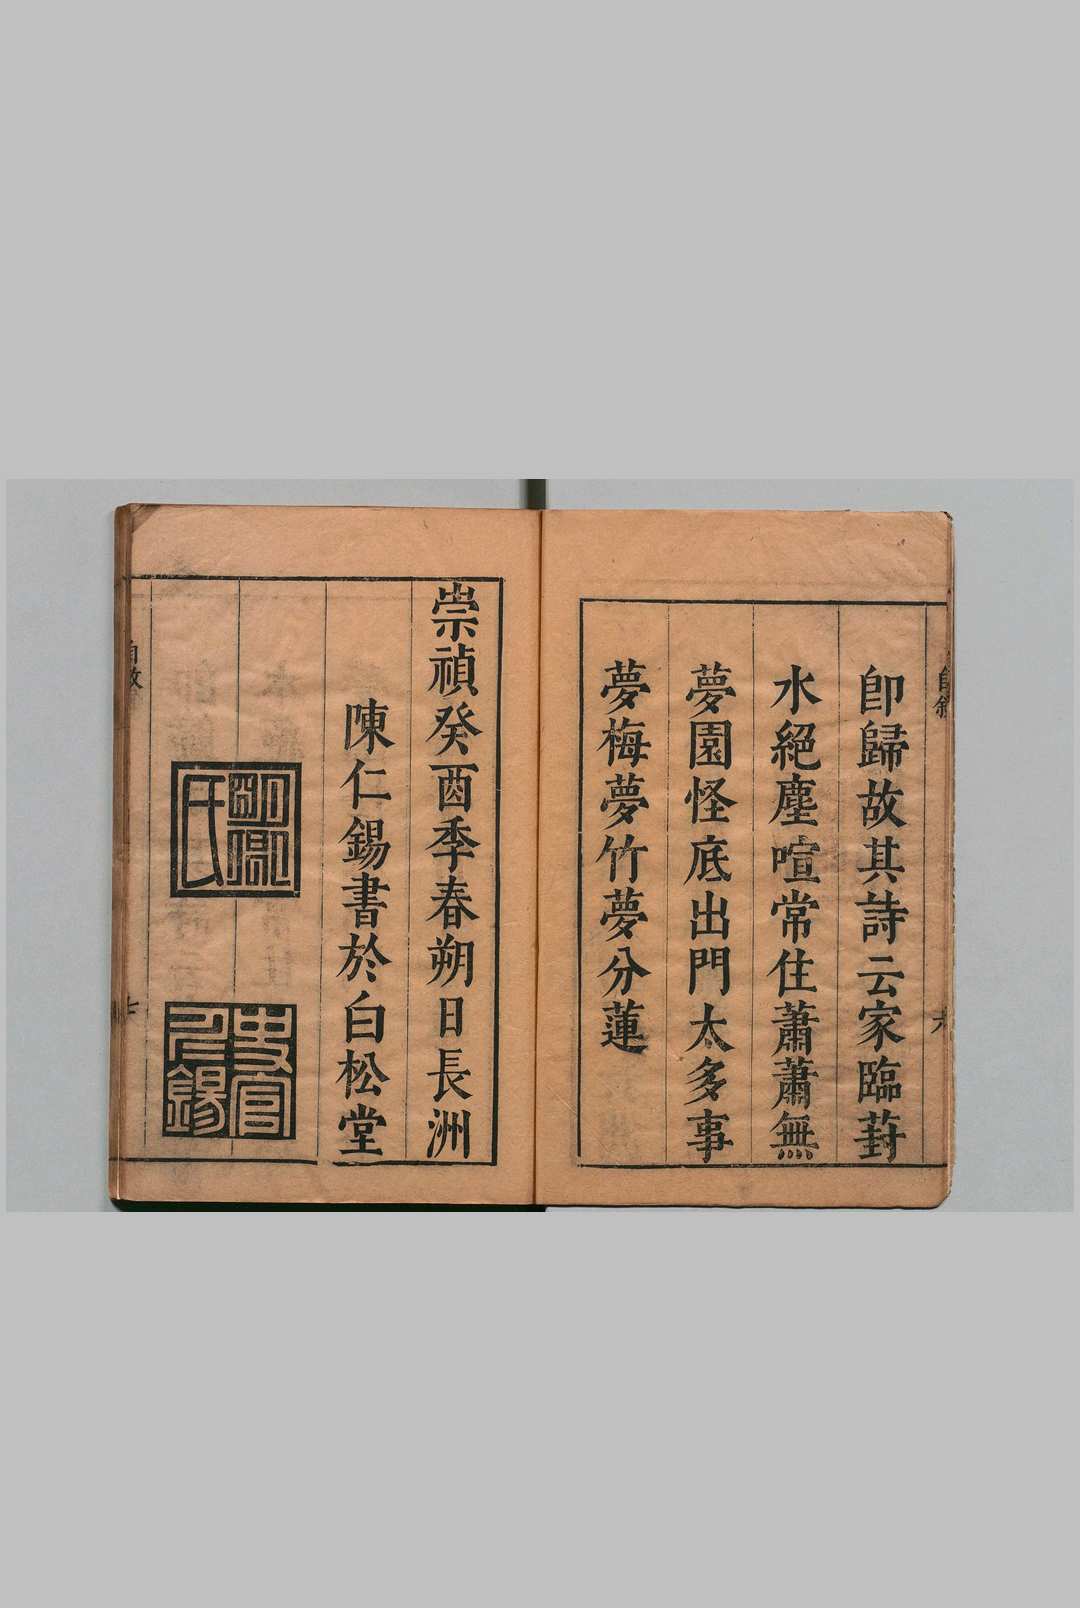 即歸故其詩云家臨葑
水絕塵喧常住蕭蕭無
夢園怪底出門太多事
夢梅夢竹夢分蓮
六
崇禎癸酉季春朔日長洲
陳仁錫書於白松堂
明卿氏
史官仁錫
七